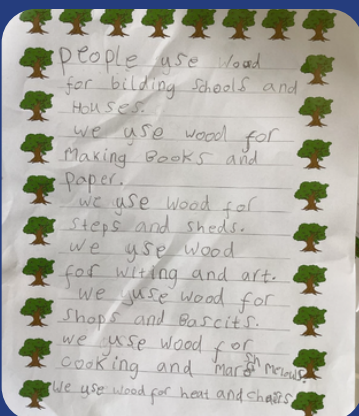 people use wood
for bilding schools and
Houses.
we use wood for
Making Books and
paper.
we use wood for
steps and sheds.
we use wood
for witing and art.
we yuse wood for
shops and Bascits.
we use wood for
cooking and marshmelows.
We use wood for heat and chairs